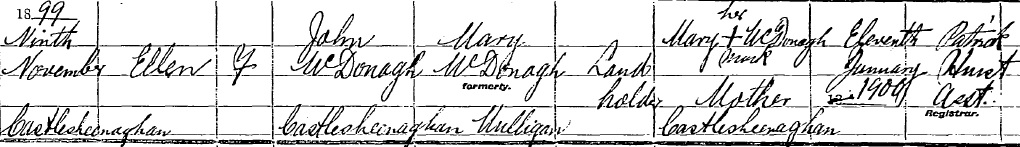 1899
Ninth November
Castlesheenaghan
Ellen
F
John McDonagh
Castlesheenaghan
Mary McDonagh
formerly.
Mulligan
Landholder
her
Mary + McDonagh
mark
Mother
Castlesheenaghan
Eleventh
January
1900
Patrick
Hurst
Asst.
Registrar.